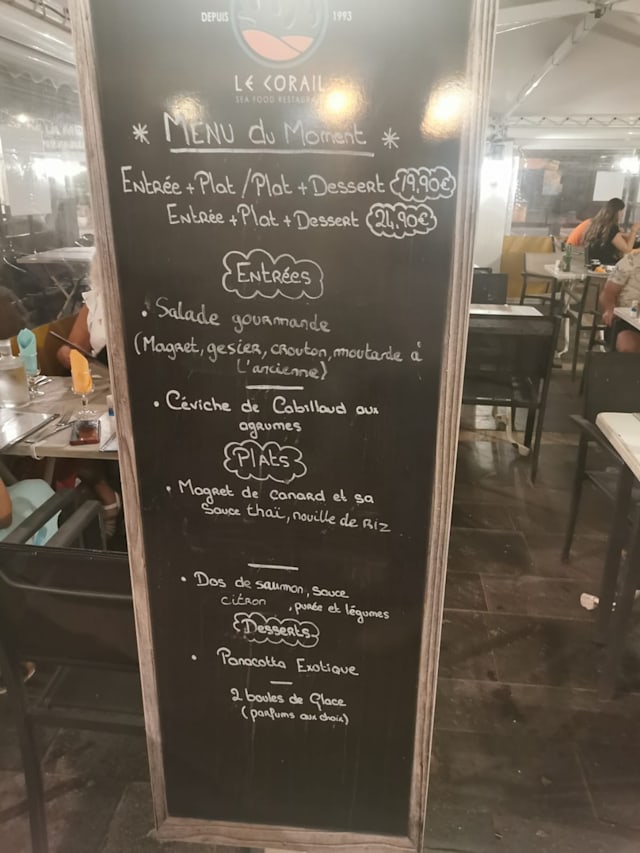 DEPUIS 1993
LE CORAIL
SEA FOOD RESTAURANT
* MENU du Moment *
Entrée + Plat / Plat + Dessert 19,90€
Entrée + Plat + Dessert 24,90€
Entrées
• Salade gourmande
(Magret, gesier, crouton, moutarde à
l'ancienne)
• Céviche de Cabillaud aux
agrumes
Plats
• Magret de canard et sa
Sauce thaï, nouille de Riz
• Dos de saumon, sauce
citron , purée et légumes
Desserts
• Panacotta Exotique
2 boules de Glace
(parfums aux choix)